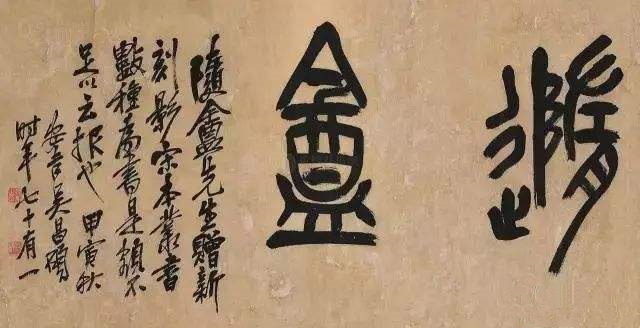 隨盦
隨盦先生贈新
刻影宋本叢書
數種屬書是額不
足以云報也 甲寅秋
安吉吳昌碩
時年七十有一